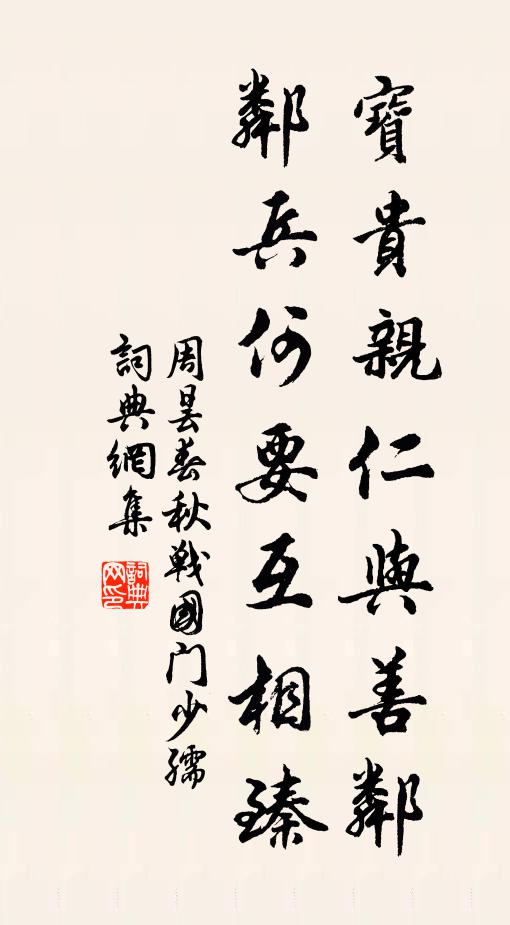 寶貴親仁與善鄰
鄰兵何要互相臻
周曇春秋戰國門少孺
詞典網集
詞典
网印